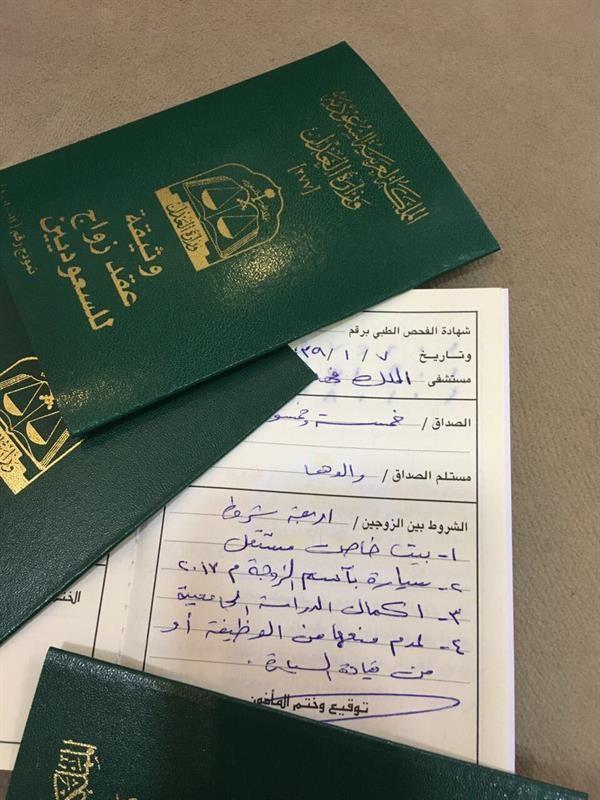 المملكة العربية السعودية
وزارة العدل
[٢٧٧]
وزارة العدل
وثيقة
عقد زواج
للسعوديين
شهادة الفحص الطبي برقم
وتاريخ ٧ / ١ / ٣٩
مستشفى الملك فهد
الصداق / خمسة وخمسو
مستلم الصداق / والدها
الشروط بين الزوجين / اربعة شروط
١- بيت خاص مستقل
٢- سيارة بأسم الزوجة م ٢٠١٧
٣- اكمال الدراسة الجامعية
٤- عدم منعها من الوظيفة أو
من قيادة السيارة .
توقيع وختم المأذون